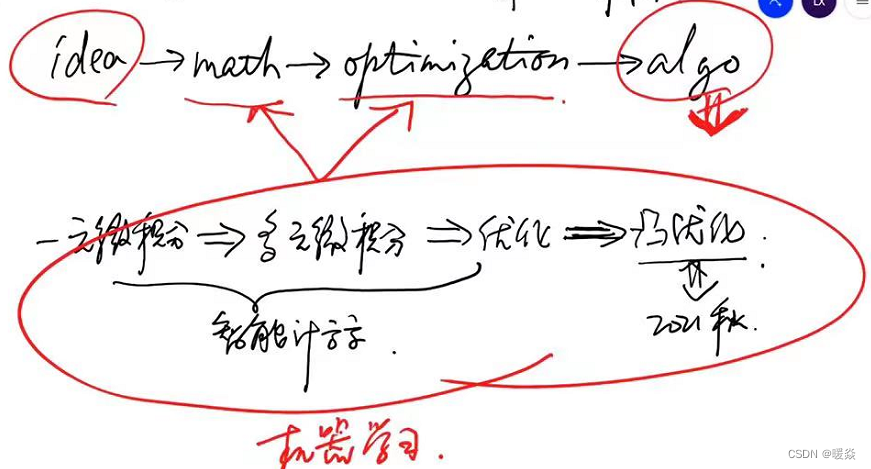 idea → math → optimization → algo
一元微积分 ⇒ 多元微积分 ⇒ 优化 ⇒ 凸优化.
智能计算.
2021秋.
机器学习.
CSDN @暖焱